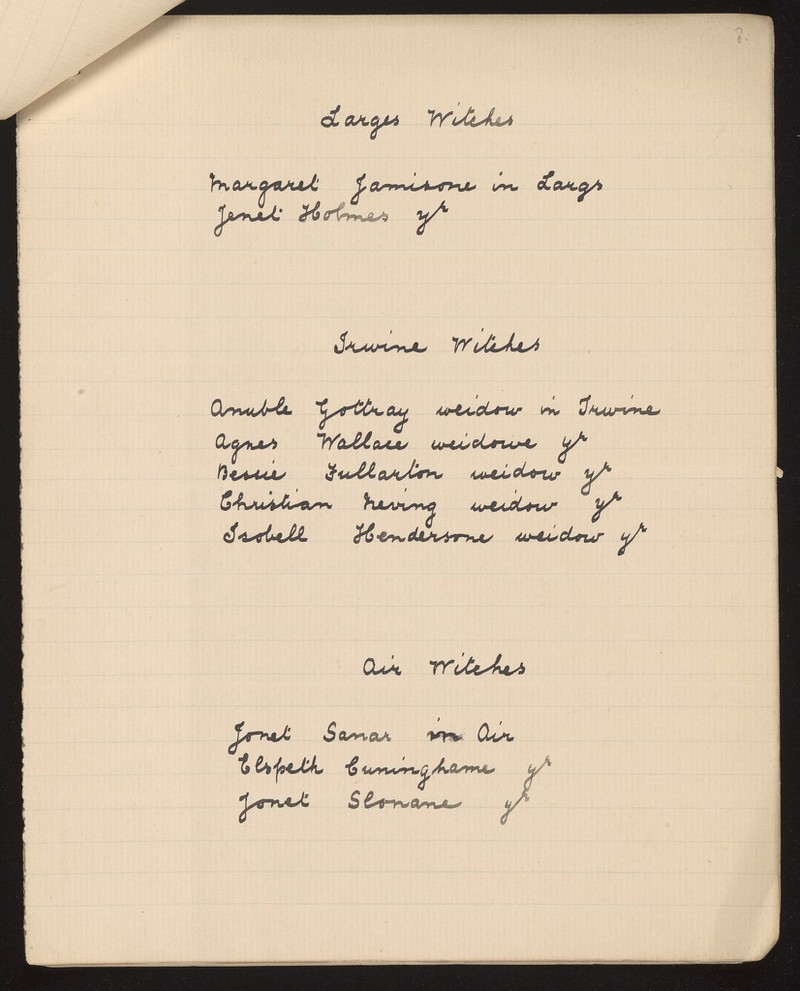 8.
Larges Witches
Margaret Jamisone in Largs
Jenet Holmes yr
Irwine Witches
Anuble Gottray weidow in Irwine
Agnes Wallace weidowe yr
Bessie Fullarton weidow yr
Christian Neving weidow yr
Isobell Hendersone weidow yr
Air Witches
Jonet Sanar in Air
Elspeth Cuninghame yr
Jonet Slonane yr